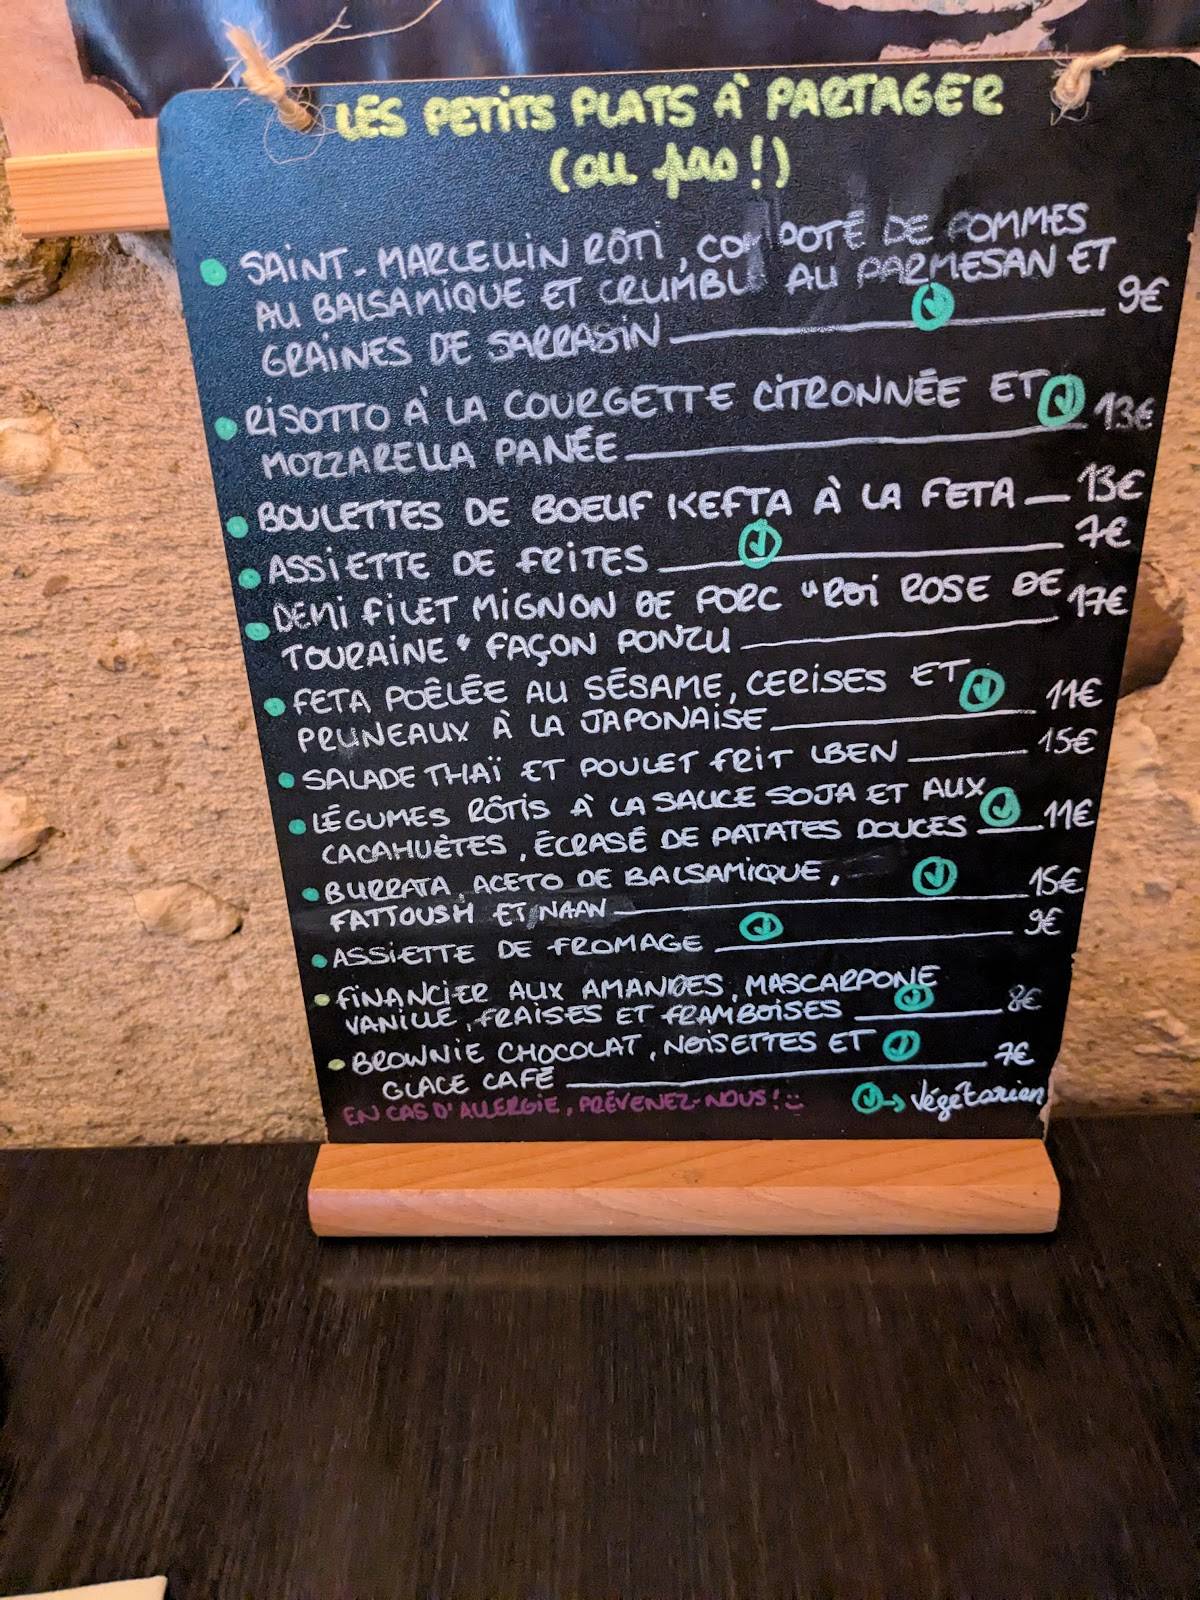 LES PETITS PLATS À PARTAGER
(ou pas !)
SAINT-MARCELLIN RÔTI, COMPOTÉ DE POMMES
AU BALSAMIQUE ET CRUMBLE AU PARMESAN ET
GRAINES DE SARRASIN 9€
RISOTTO À LA COURGETTE CITRONNÉE ET
MOZZARELLA PANÉE 13€
BOULETTES DE BOEUF KEFTA À LA FETA 13€
ASSIETTE DE FRITES 7€
DEMI FILET MIGNON DE PORC "ROI ROSE DE
TOURAINE" FAÇON PONZU 17€
FETA POÊLÉE AU SÉSAME, CERISES ET
PRUNEAUX À LA JAPONAISE 11€
SALADE THAÏ ET POULET FRIT LBEN 15€
LÉGUMES RÔTIS À LA SAUCE SOJA ET AUX
CACAHUÈTES, ÉCRASÉ DE PATATES DOUCES 11€
BURRATA, ACETO DE BALSAMIQUE,
FATTOUSH ET NAAN 15€
ASSIETTE DE FROMAGE 9€
FINANCIER AUX AMANDES, MASCARPONE
VANILLE, FRAISES ET FRAMBOISES 8€
BROWNIE CHOCOLAT, NOISETTES ET
GLACE CAFÉ 7€
EN CAS D'ALLERGIE, PRÉVENEZ-NOUS ! → Végétarien